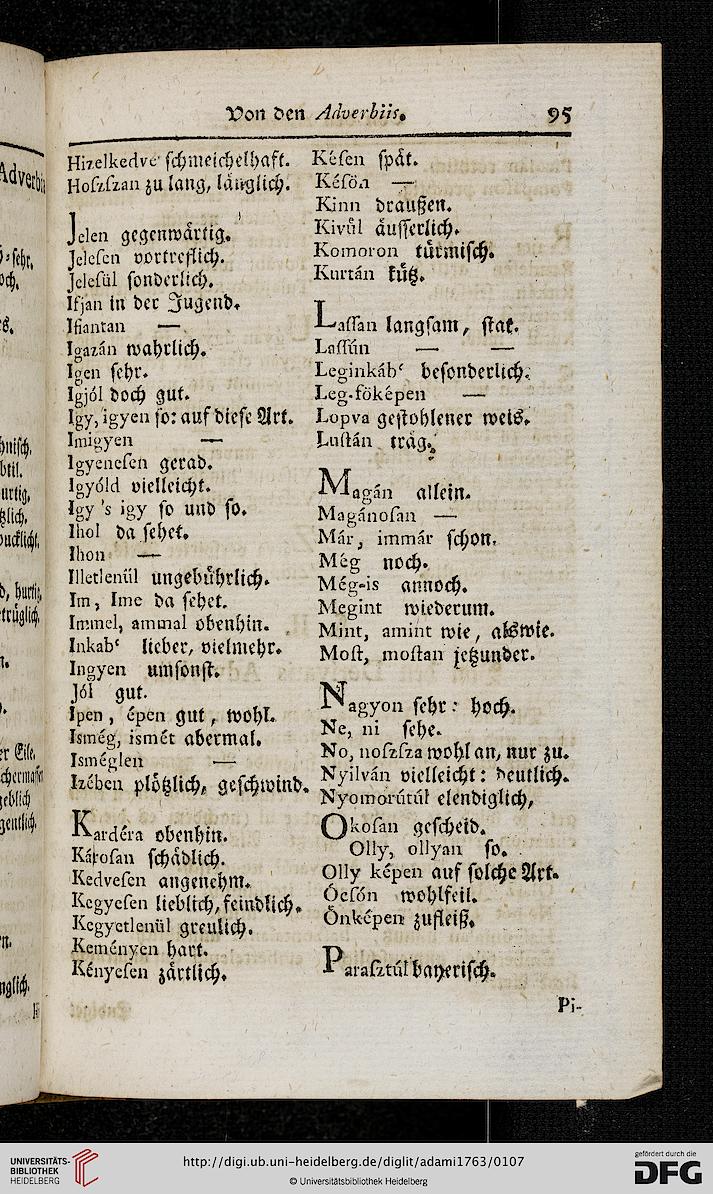 Von den Adverbiis. 95
Hizelkedve' schmeichelhaft.
Hoſzſzan zu lang, länglich.
Jelen gegenwärtig.
Jeleſen vortreflich.
Jeleſül ſonderlich.
Ifjan in der Jugend.
Ifiantan —
Igazán wahrlich.
Igen ſehr.
Igjól doch gut.
Igy, igyen ſo: auf dieſe Art.
Imigyen —
Igyeneſen gerad.
Igyóld vielleicht.
Igy 's igy ſo und ſo.
Ihol da ſehet.
Ihon —
Illetlenül ungebührlich.
Im, Ime da ſehet.
Immel, ammal obenhin.
Inkab‘ lieber, vielmehr.
Ingyen umſonſt.
Jól gut.
Ipen, épen gut, wohl.
Ismég, ismét abermal.
Isméglen —
Izében plötzlich, geſchwind.
Kardéra obenhin.
Károſan ſchädlich.
Kedveſen angenehm.
Kegyeſen lieblich, feindlich.
Kegyetlenül greulich.
Keményen hart.
Kényeſen zärtlich.
Kéſen ſpät.
Kéſön —
Kinn draußen.
Kivül äuſſerlich.
Komoron türmiſch.
Kurtán kütz.
Laſſan langſam, ſtat.
Laſſún — —
Leginkáb‘ beſonderlich.
Leg-föképen —
Lopva geſtohlener weis.
Luſtán träg.
Magán allein.
Magánoſan —
Már, immár ſchon.
Még noch.
Még-is annoch.
Megint wiederum.
Mint, amint wie, als wie.
Moſt, moſtan jetzunder.
Nagyon ſehr: hoch.
Ne, ni ſehe.
No, noſzſza wohl an, nur zu.
Nyilván vielleicht: deutlich.
Nyomorútúl elendiglich,
Okoſan geſcheid.
Olly, ollyan ſo.
Olly képen auf ſolche Art.
Ócſón wohlfeil.
Önképen zufleiß.
Paraſztúl bayeriſch.
Pi-
UNIVERSITÄTS-
BIBLIOTHEK
HEIDELBERG
http://digi.ub.uni-heidelberg.de/diglit/adami1763/0107
© Universitätsbibliothek Heidelberg
gefördert durch die
DFG